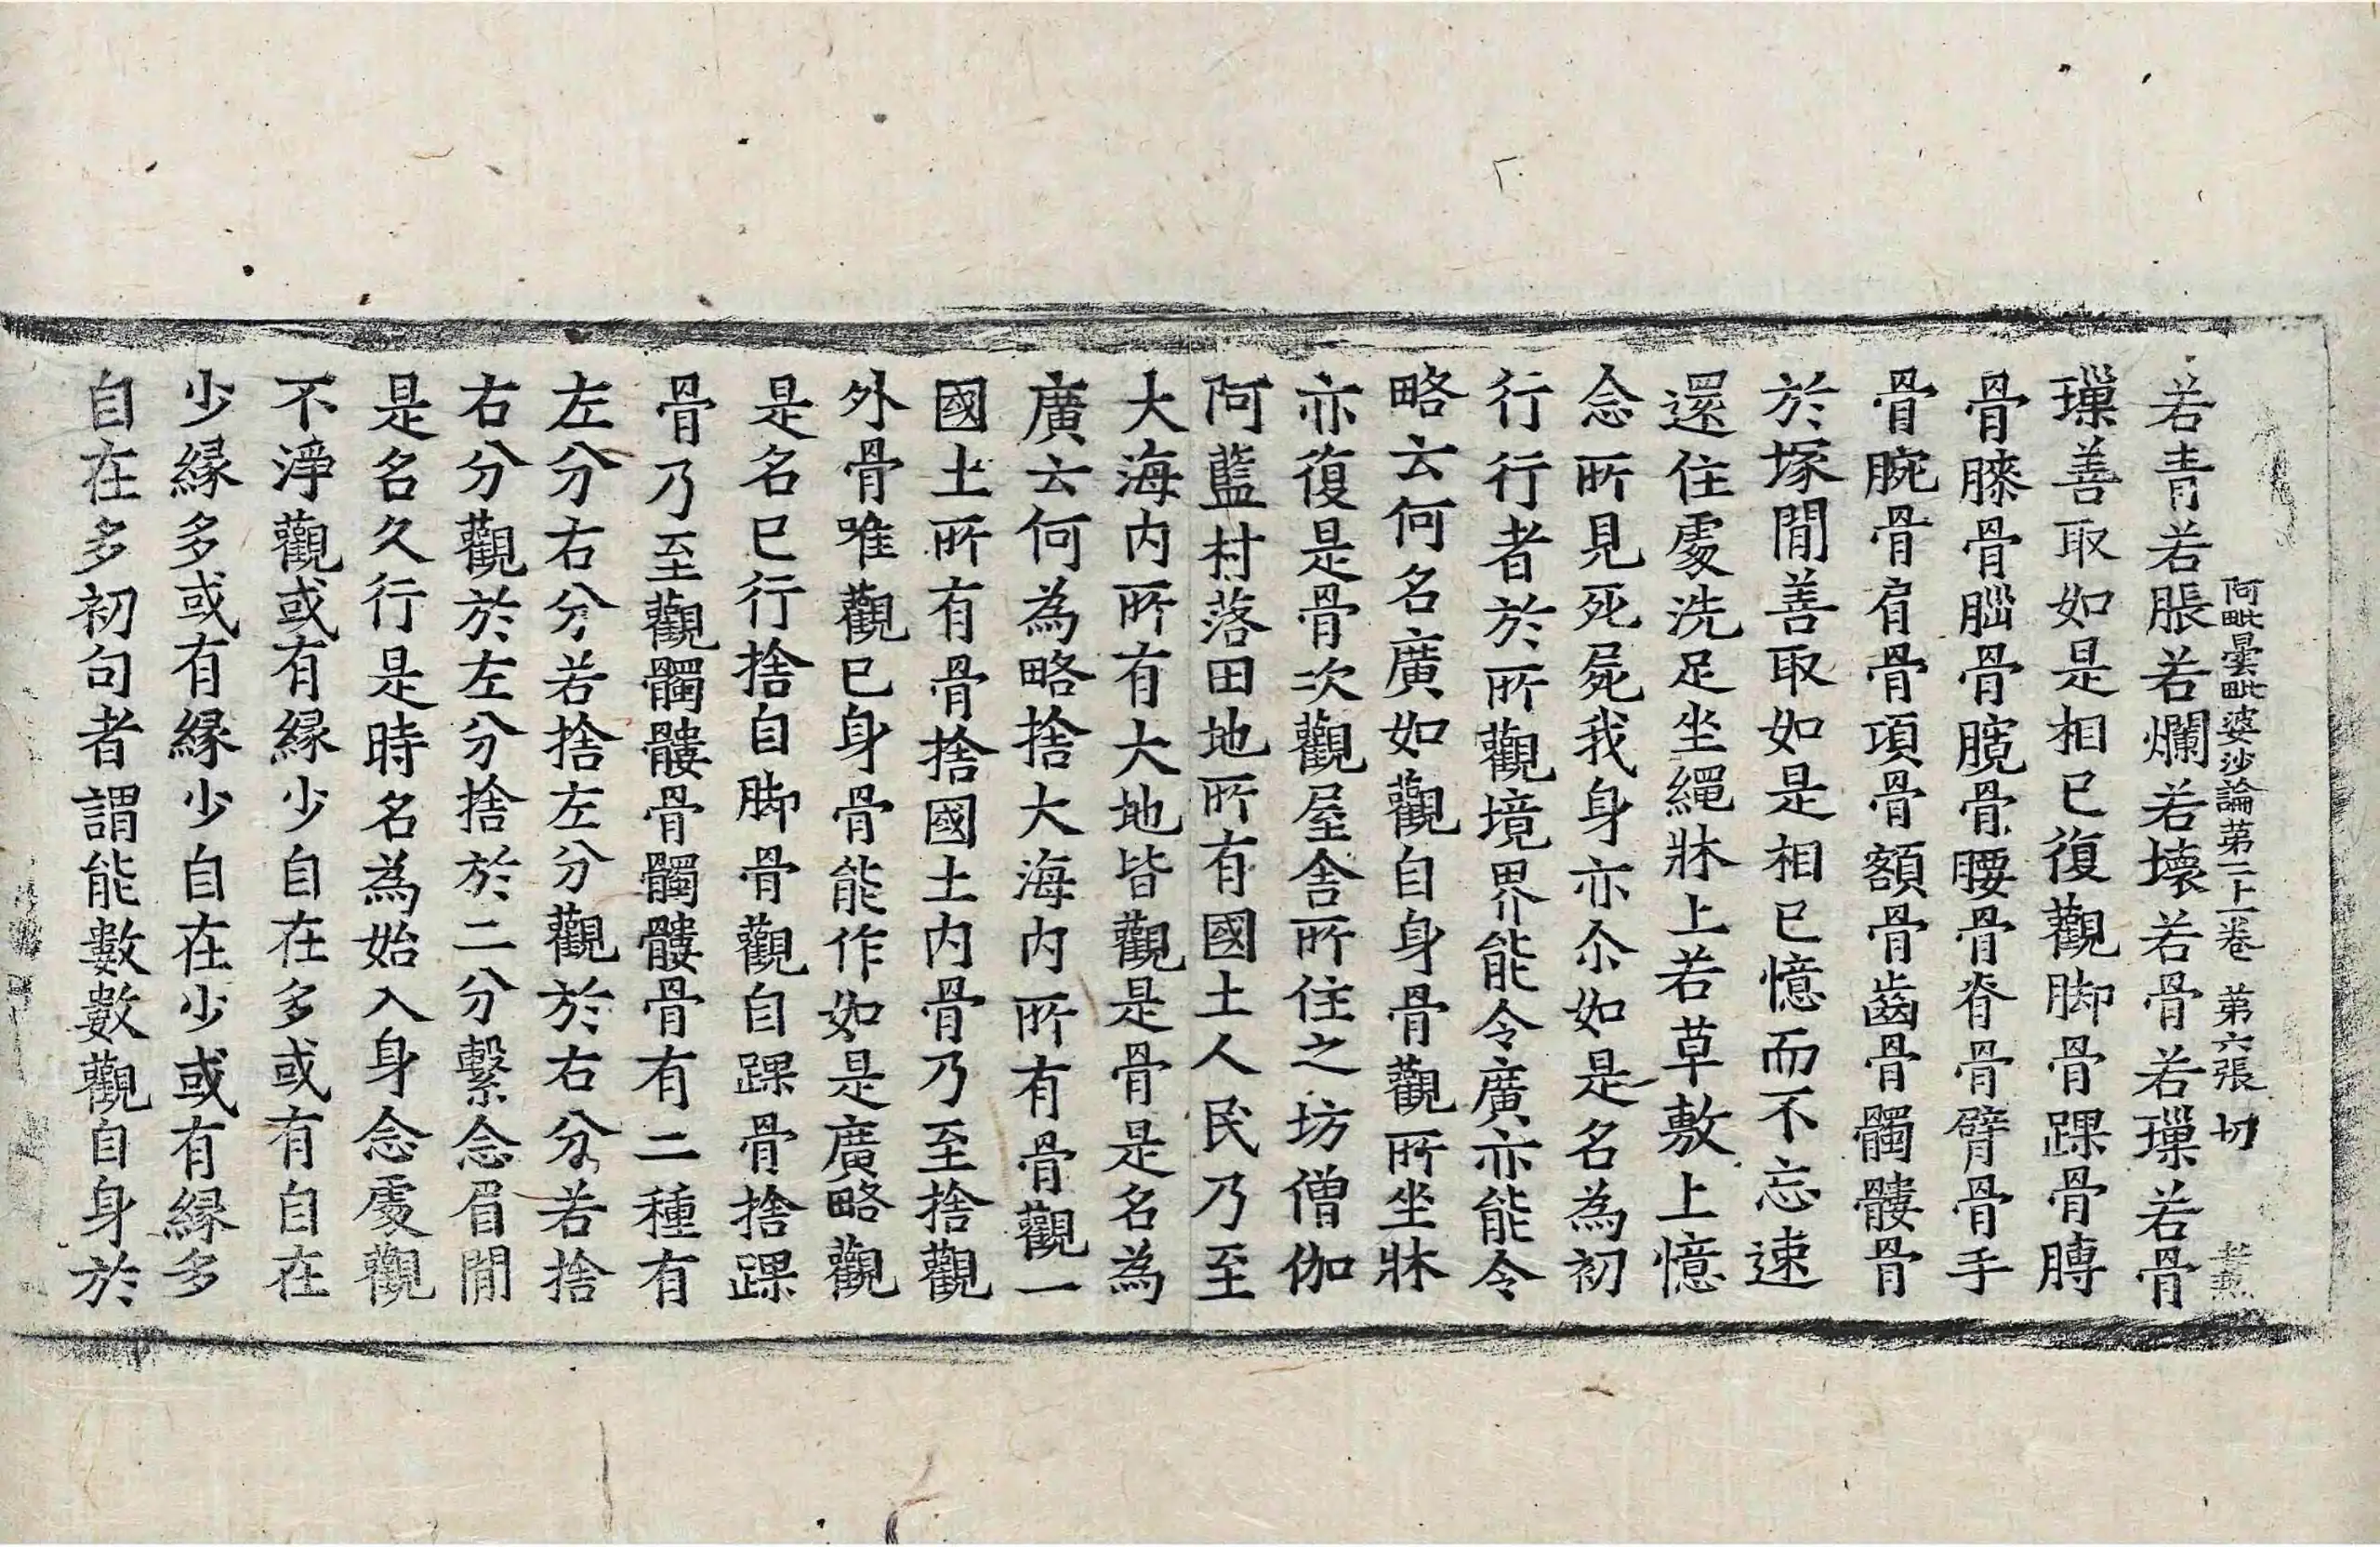 阿毗曇毗婆沙論第二十一卷 第六張 切
若青若脹若爛若壞若骨若璅若骨
璅善取如是相已復觀脚骨踝骨膞
骨膝骨𦜗骨髖骨腰骨脊骨臂骨手
骨腕骨肩骨項骨額骨齒骨髑髏骨
於塚閒善取如是相已憶而不忘速
還住處洗足坐繩牀上若草敷上憶
念所見死屍我身亦尒如是名為初
行行者於所觀境界能令廣亦能令
略云何名廣如觀自身骨觀所坐牀
亦復是骨次觀屋舍所住之坊僧伽
阿藍村落田地所有國土人民乃至
大海內所有大地皆觀是骨是名為
廣云何為略捨大海內所有骨觀一
國土所有骨捨國土內骨乃至捨觀
外骨唯觀已身骨能作如是廣略觀
是名已行捨自脚骨觀自踝骨捨踝
骨乃至觀髑髏骨髑髏骨有二種有
左分右分若捨左分觀於右分若捨
右分觀於左分捨於二分繫念眉閒
是名久行是時名為始入身念處觀
不淨觀或有緣少自在多或有自在
少緣多或有緣少自在少或有緣多
自在多初句者謂能數數觀自身於